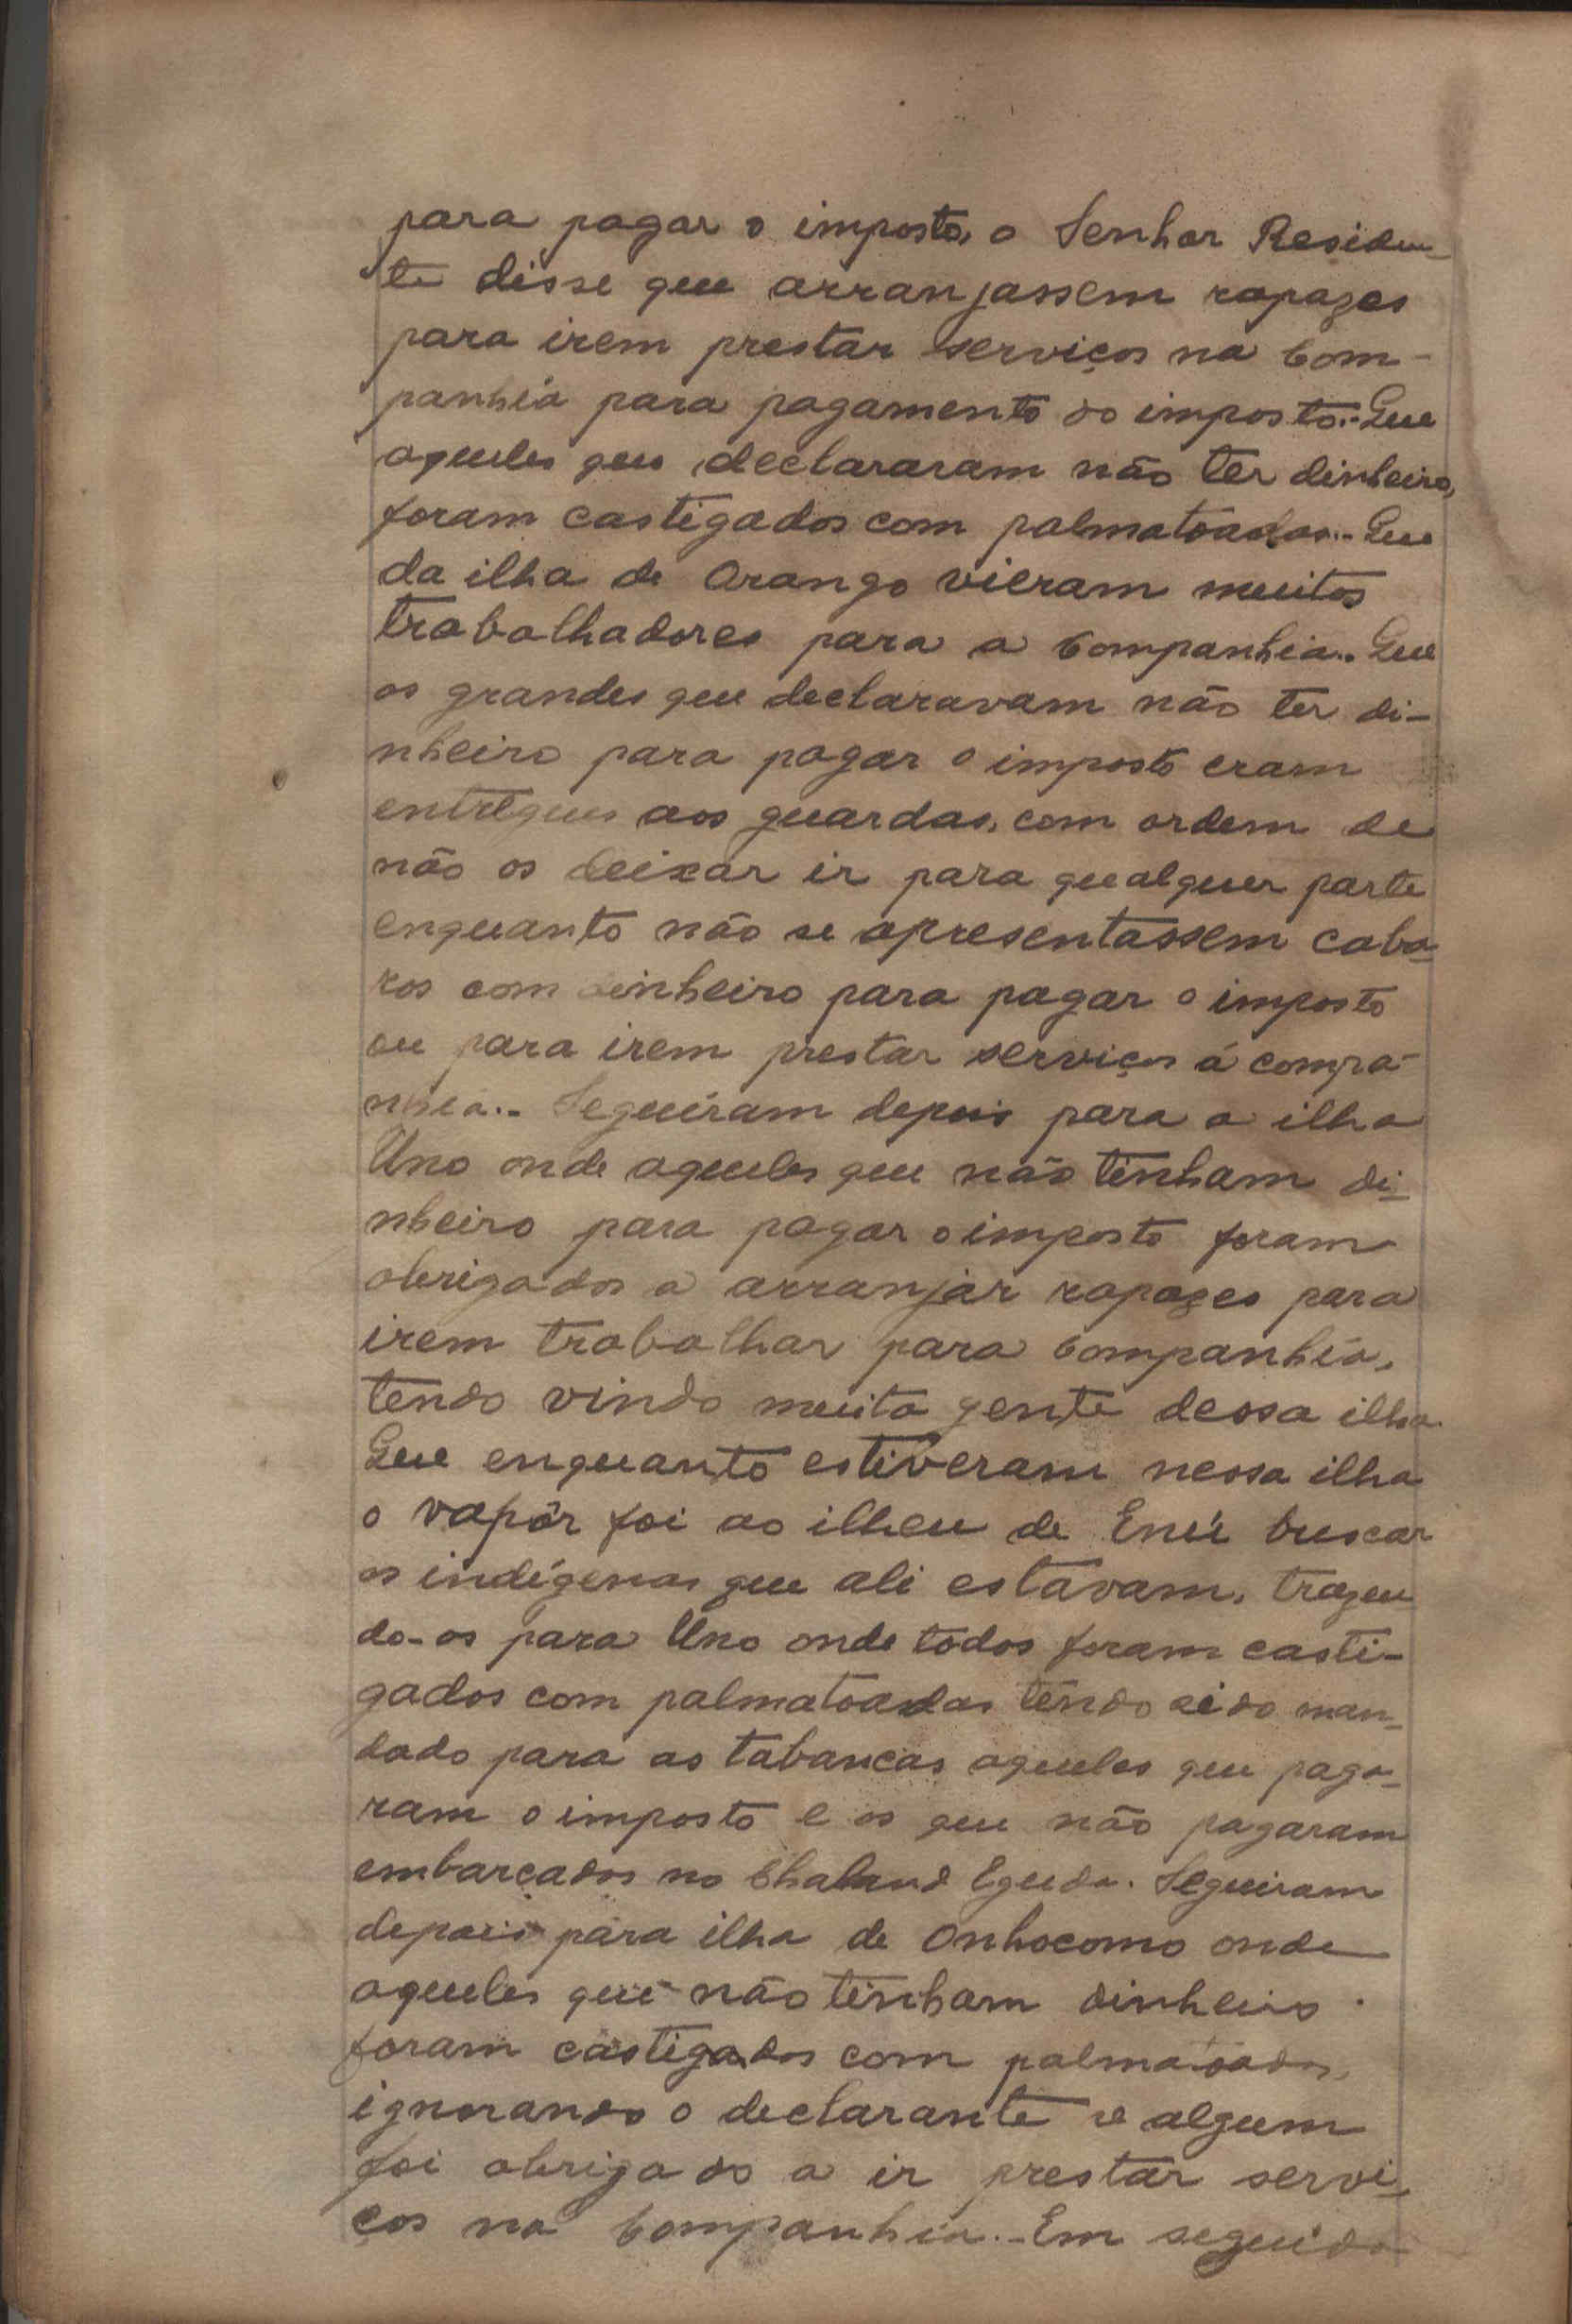 para pagar o imposto, o Senhor Residen-
te disse que arranjassem rapazes
para irem prestar serviços na Com-
panhia para pagamento do imposto.- Que
aqueles que declararam não ter dinheiro,
foram castigados com palmatoadas.- Que
da ilha de Orango vieram muitos
trabalhadores para a Companhia.- Que
os grandes que declaravam não ter di-
nheiro para pagar o imposto eram
entregues aos guardas, com ordem de
não os deixar ir para qualquer parte
enquanto não se apresentassem caba-
ros com dinheiro para pagar o imposto
ou para irem prestar serviços á compa-
nhia.- Seguiram depois para a ilha
Uno onde aqueles que não tinham di-
nheiro para pagar o imposto foram
obrigados a arranjar rapazes para
irem trabalhar para Companhia,
tendo vindo muita gente dessa ilha.
Que enquanto estiveram nessa ilha
o vapôr foi ao ilheu de Enú buscar
os indígenas que ali estavam, trazen-
do-os para Uno onde todos foram casti-
gados com palmatoadas tendo sido man-
dado para as tabancas aqueles que paga-
ram o imposto e os que não pagaram
embarcados no Chaland Egueda. Seguiram
depois para ilha de Onhocomo onde
aqueles que não tinham dinheiro
foram castigados com palmatoadas,
ignorando o declarante se algum
foi obrigado a ir prestar servi-
ços na Companhia.- Em seguida